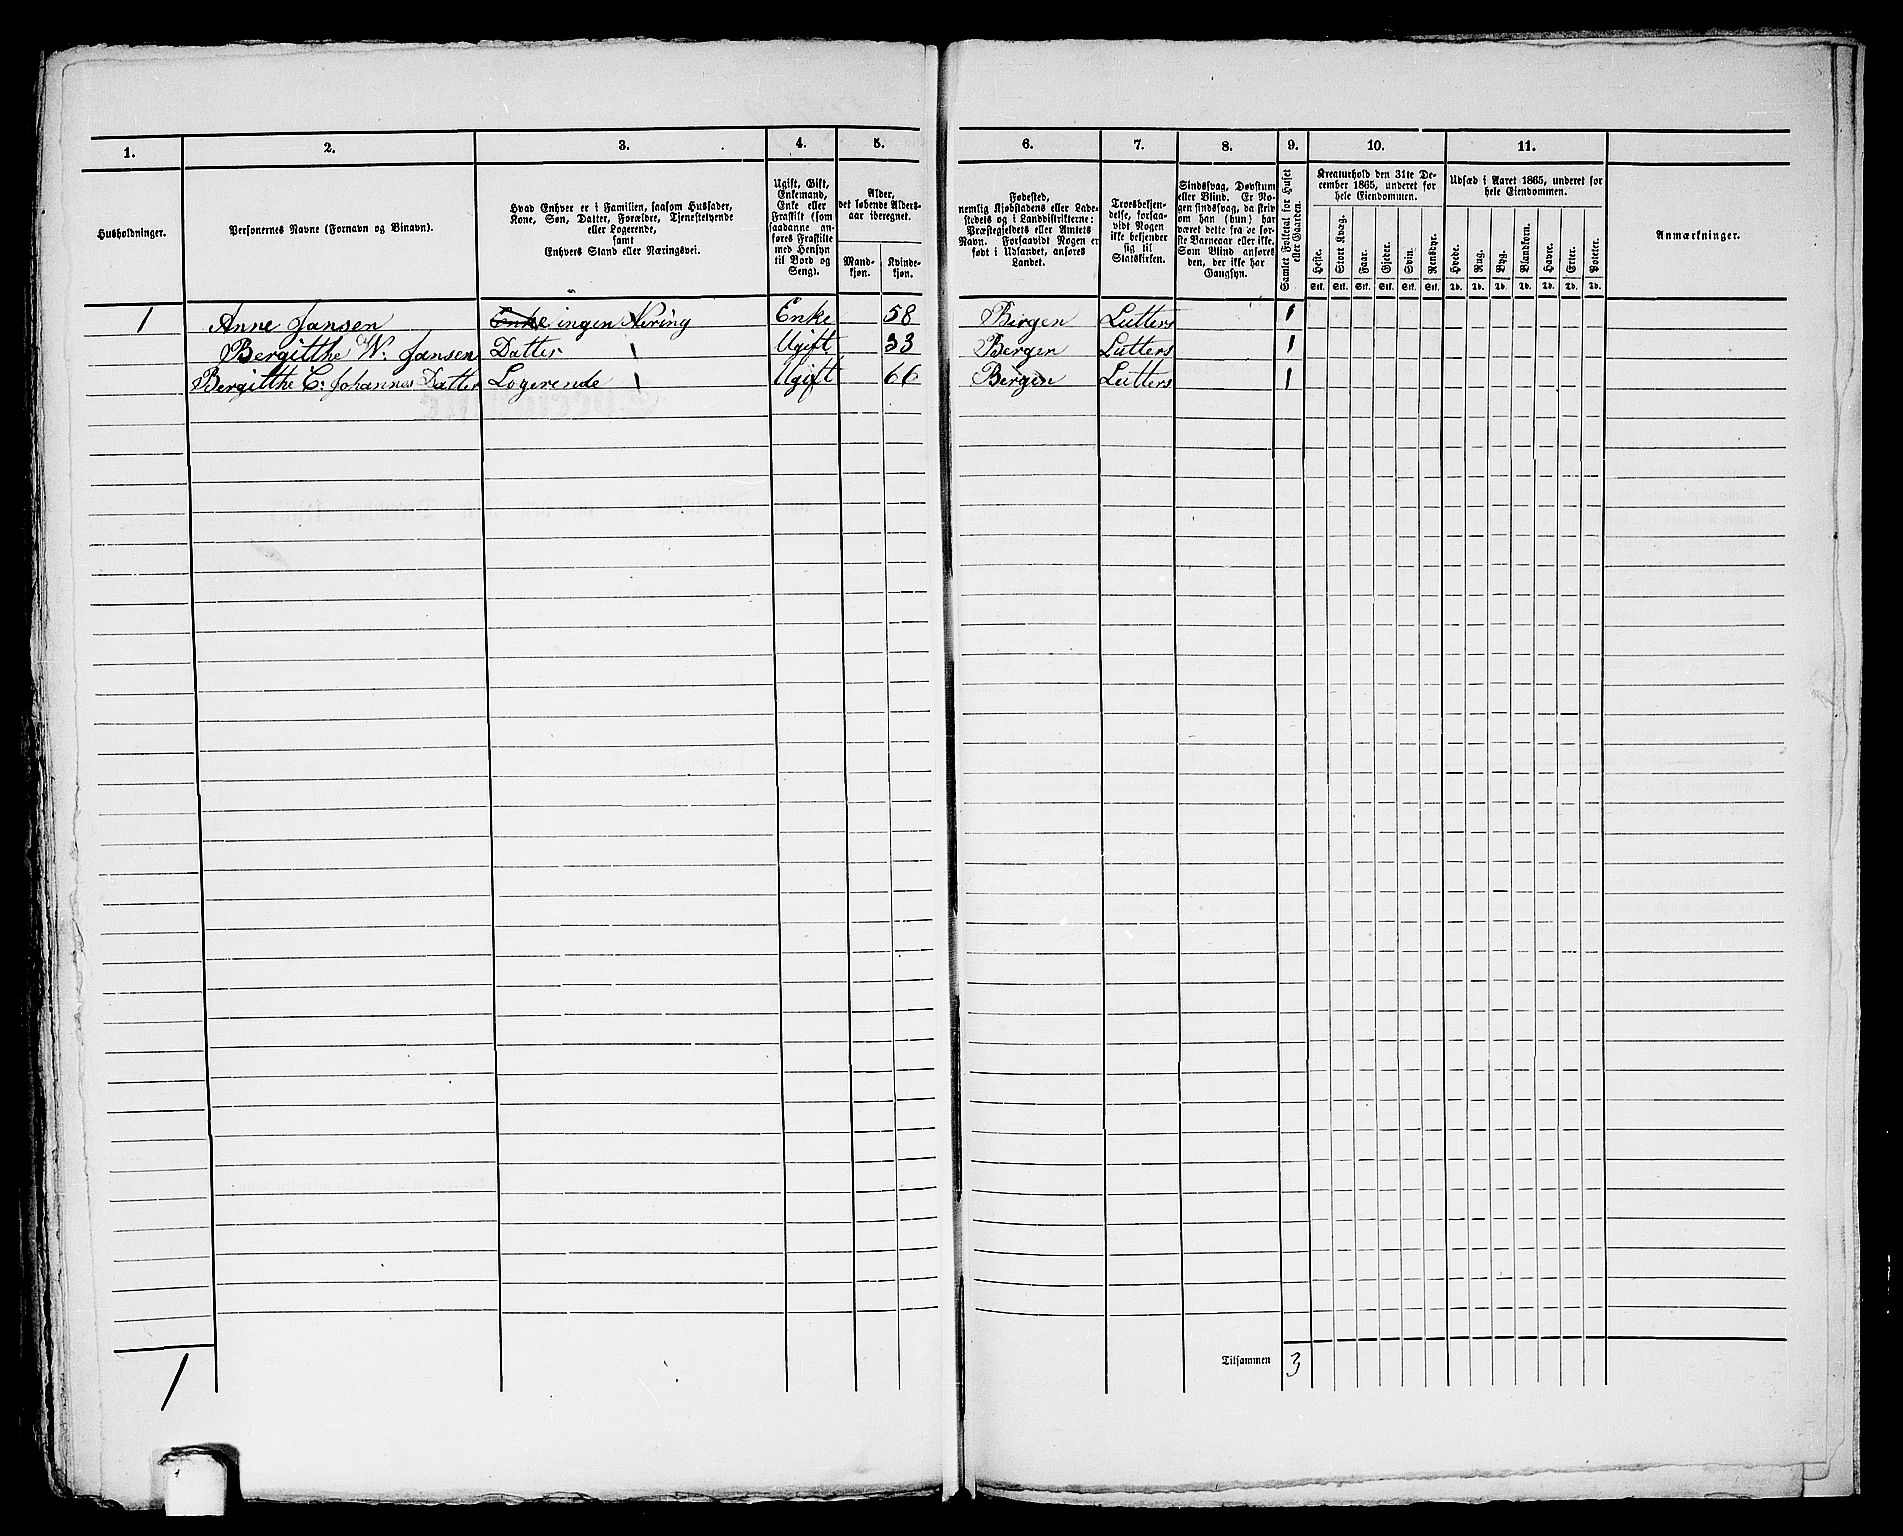 1. 2. 3. 4. 5. 6. 7. 8. 9. 10. 11.
Husholdninger.
Personernes Navne (Fornavn og Binavn).
Hvad Enhver er i Familien, saasom Husfader,
Kone, Søn, Datter, Forældre, Tjenestetyende
eller Logerende,
samt
Enhvers Stand eller Næringsvei.
Ugift, Gift,
Enkemand,
Enke eller
Fraskilt (som
saadanne an-
føres Fraskilte
med Hensyn
til Bord og
Seng).
Alder,
det løbende Alders-
aar iberegnet.
Mand-
kjøn.
Kvinde-
kjøn.
Fødested,
nemlig Kjøbstadens eller Lade-
stedets og i Landdistrikterne:
Præstegjeldets eller Amtets
Navn. Forsaavidt Nogen er
født i Udlandet, anføres
Landet.
Troesbekjen-
delse, forsaa-
vidt Nogen
ikke bekjender
sig til
Statskirken.
Sindssvag, Døvstum
eller Blind. Er No-
gen sindssvag, da skriv
om han (hun) har
været dette fra de før-
ste Barneaar eller ikke.
Som Blind anføres
den, der ikke har
Gangsyn.
Samlet Folketal for Huset
eller Gaarden.
Kreaturhold den 31te De-
cember 1865, underet for
hele Eiendommen.
Heste. Stort Kvæg. Faar. Gjeder. Svin. Rensdyr.
Stk. Stk. Stk. Stk. Stk. Stk.
Udsæd i Aaret 1865, underet for
hele Eiendommen.
Hvede. Rug. Byg. Blandkorn. Havre. Erter. Poteter.
Td. Td. Td. Td. Td. Td. Td.
Anmærkninger.
1 Anne Jansen Enke ingen Nering Enke 58 Bergen Lutters 1
Bergitthe W. Jansen Datter Ugift 33 Bergen Lutters 1
Bergitthe C: Johannes Datter Logerende Ugift 66 Bergen Lutters 1
Tilsammen 3
1